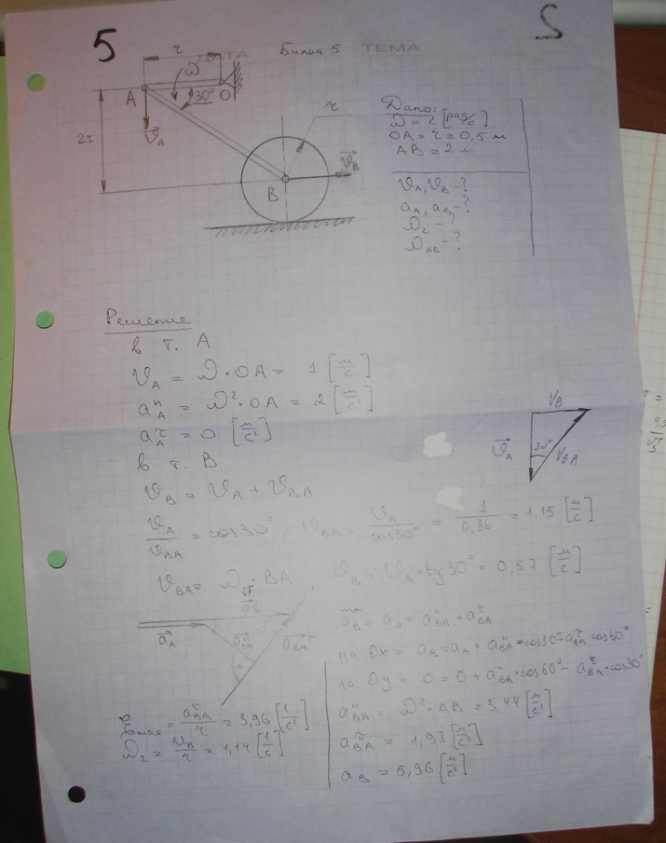 5
S
Билет 5 ТЕМА
r
ω
A
30°
O
2r
v⃗A
r
v⃗B
B
Дано:
ω = 2 [рад/с]
OA = r = 0,5 м
AB = 2 м
vA, vB - ?
ω2 - ?
ωAB - ?
Решение:
в т. A
vA = ω·OA = 1 [м/с]
aⁿA = ω²·OA = 2 [м/с²]
aᵗA = 0 [м/с²]
в т. B
vB = vA + vBA
vB
v⃗A
30°
vBA
vA/vBA = cos30°, vBA = vA/cos30° = 1/0,86 = 1,15 [м/с]
vBA = BA
vB = vA·tg30° = 0,57 [м/с]
a⃗A
a⃗ⁿBA
a⃗ᵗBA
a⃗B = aA + aⁿBA + aᵗBA
на Ox = aB = aA + aⁿBA·cos30° aᵗBA cos60°
на Oy = 0 = 0 + aⁿBA·cos60° - aᵗBA·cos30°
aⁿBA = ω²·AB = 3,44 [м/с²]
aᵗBA = 1,98 [м/с²]
aB = 5,96 [м/с²]
= aᵗBA/r = 3,96 [1/с²]
ω2 = vB/r = 1,14 [1/с]